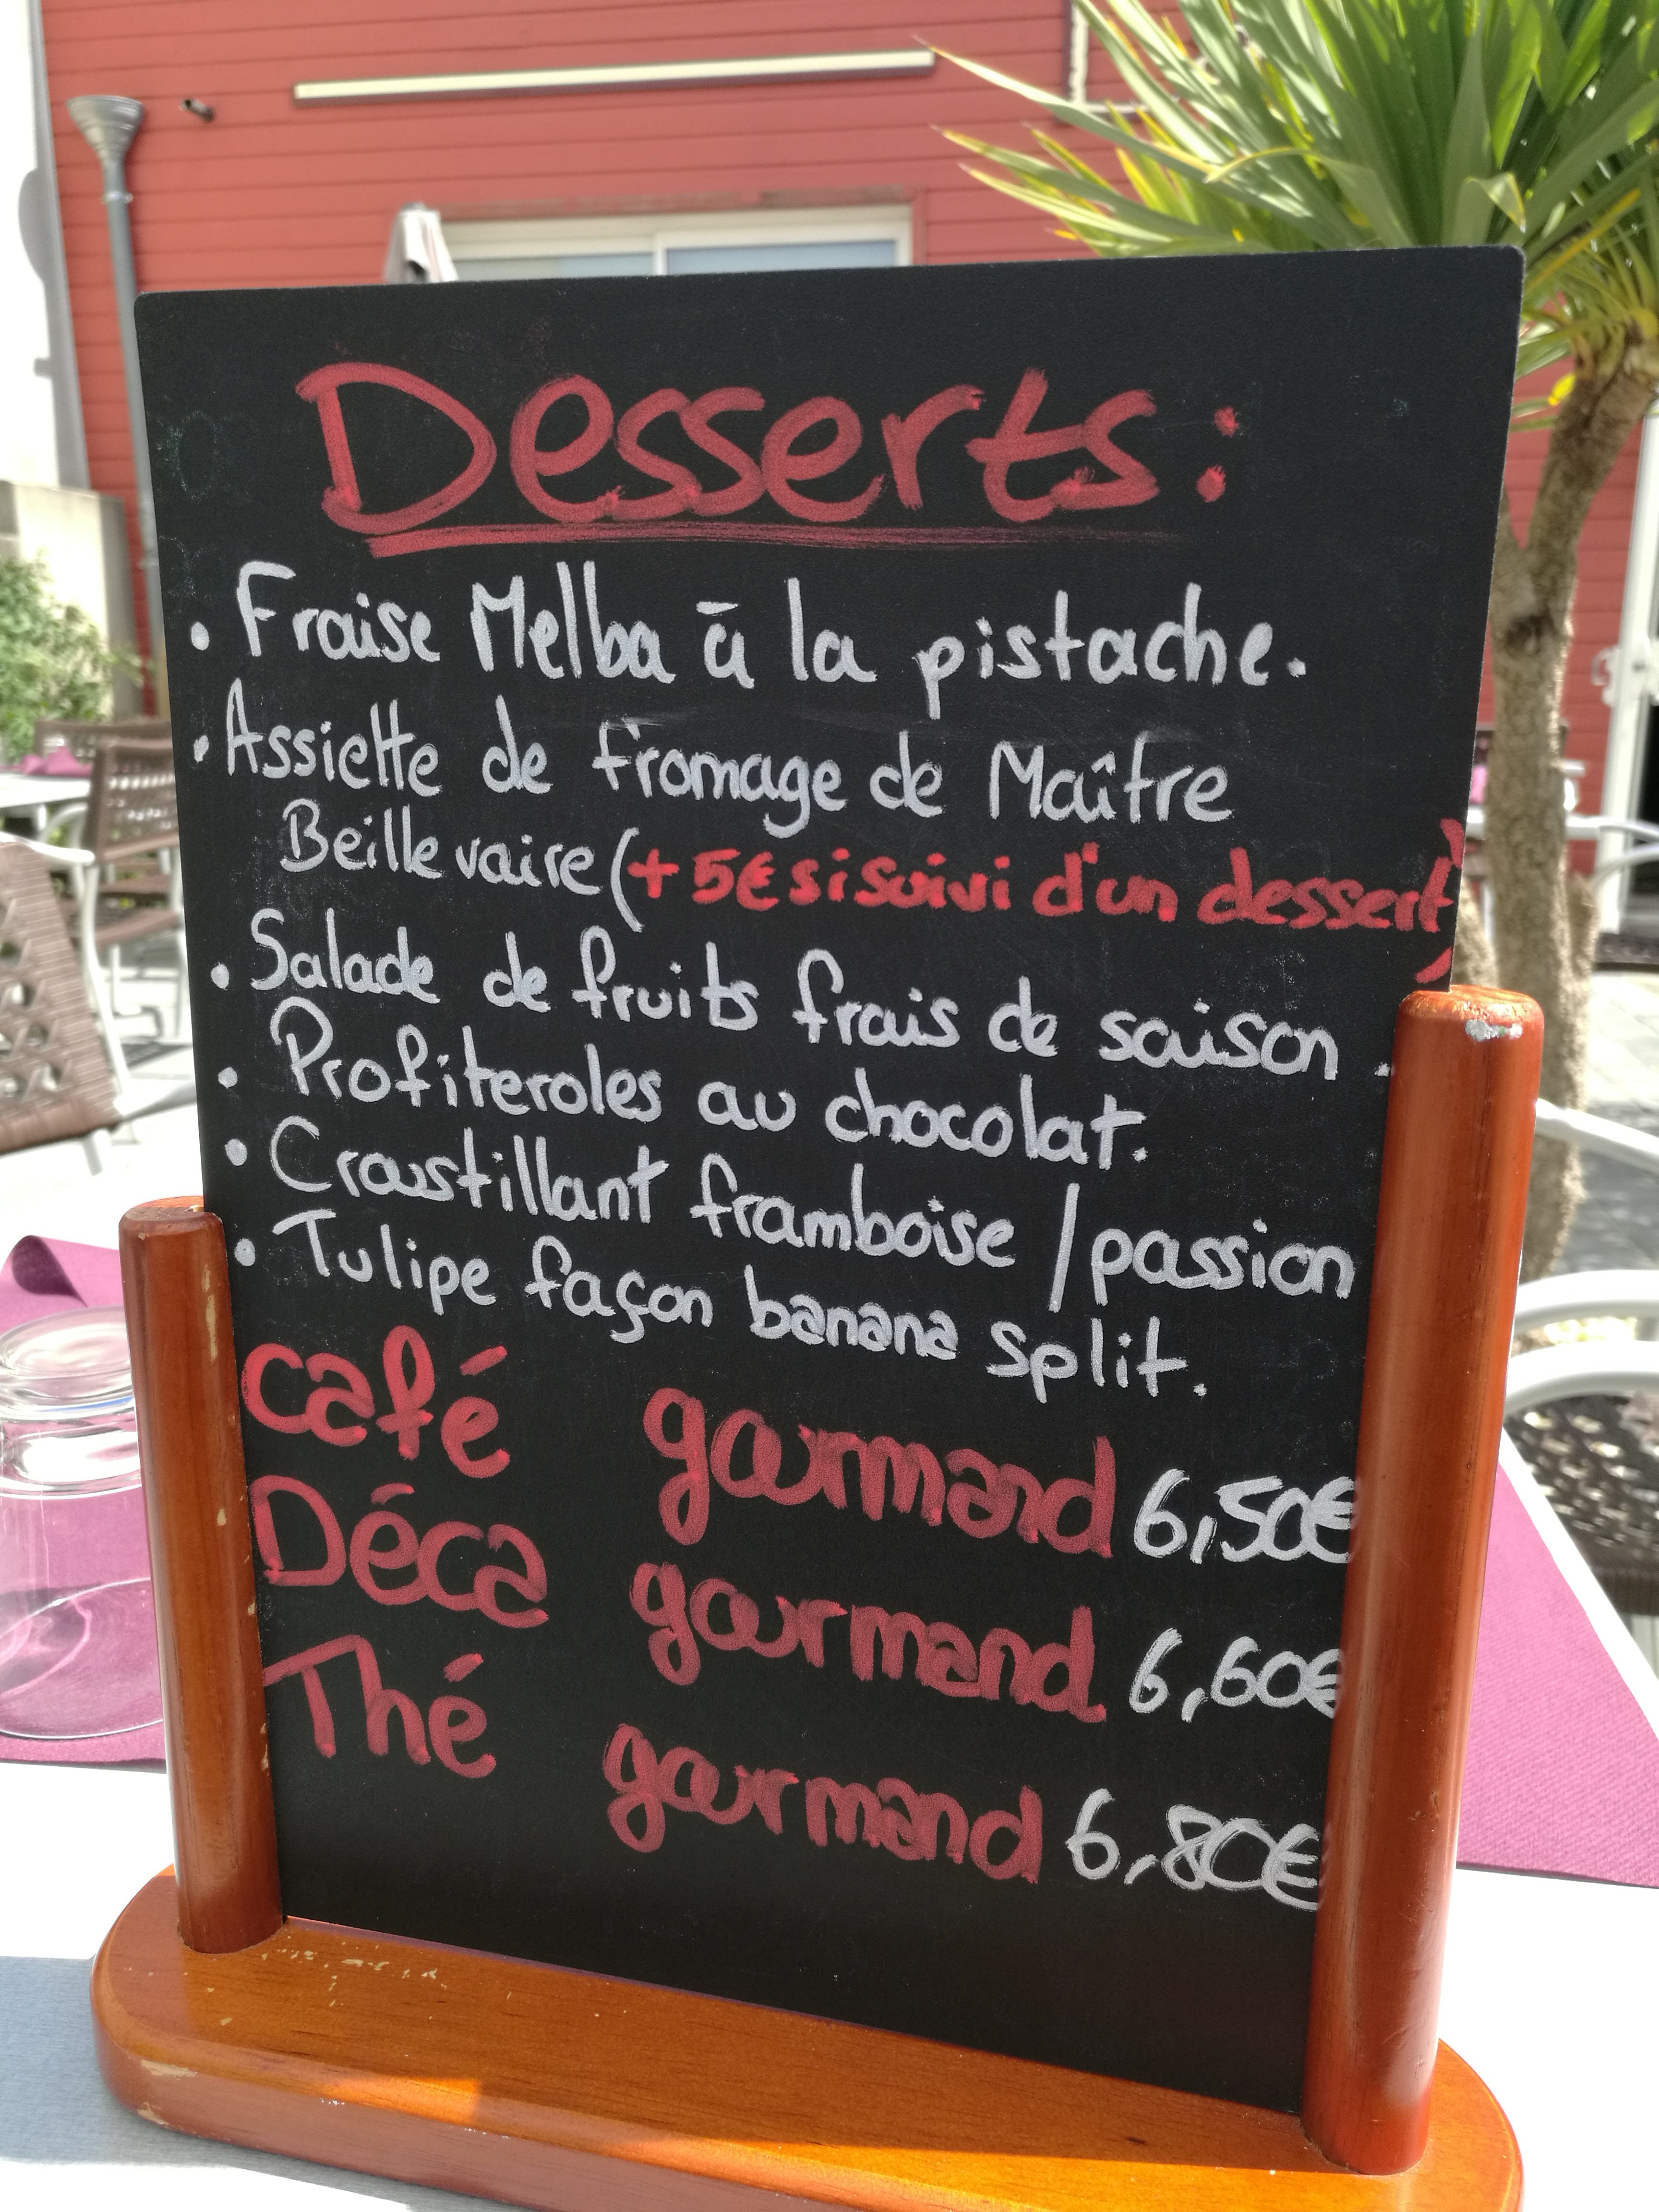 Desserts :
• Fraise Melba à la pistache.
• Assiette de fromage de Maître
Beillevaire (+ 5€ si suivi d'un dessert)
• Salade de fruits frais de saison.
• Profiteroles au chocolat.
• Croustillant framboise / passion
• Tulipe façon banana split.
café gourmand 6,50€
Déca gourmand 6,60€
Thé gourmand 6,80€